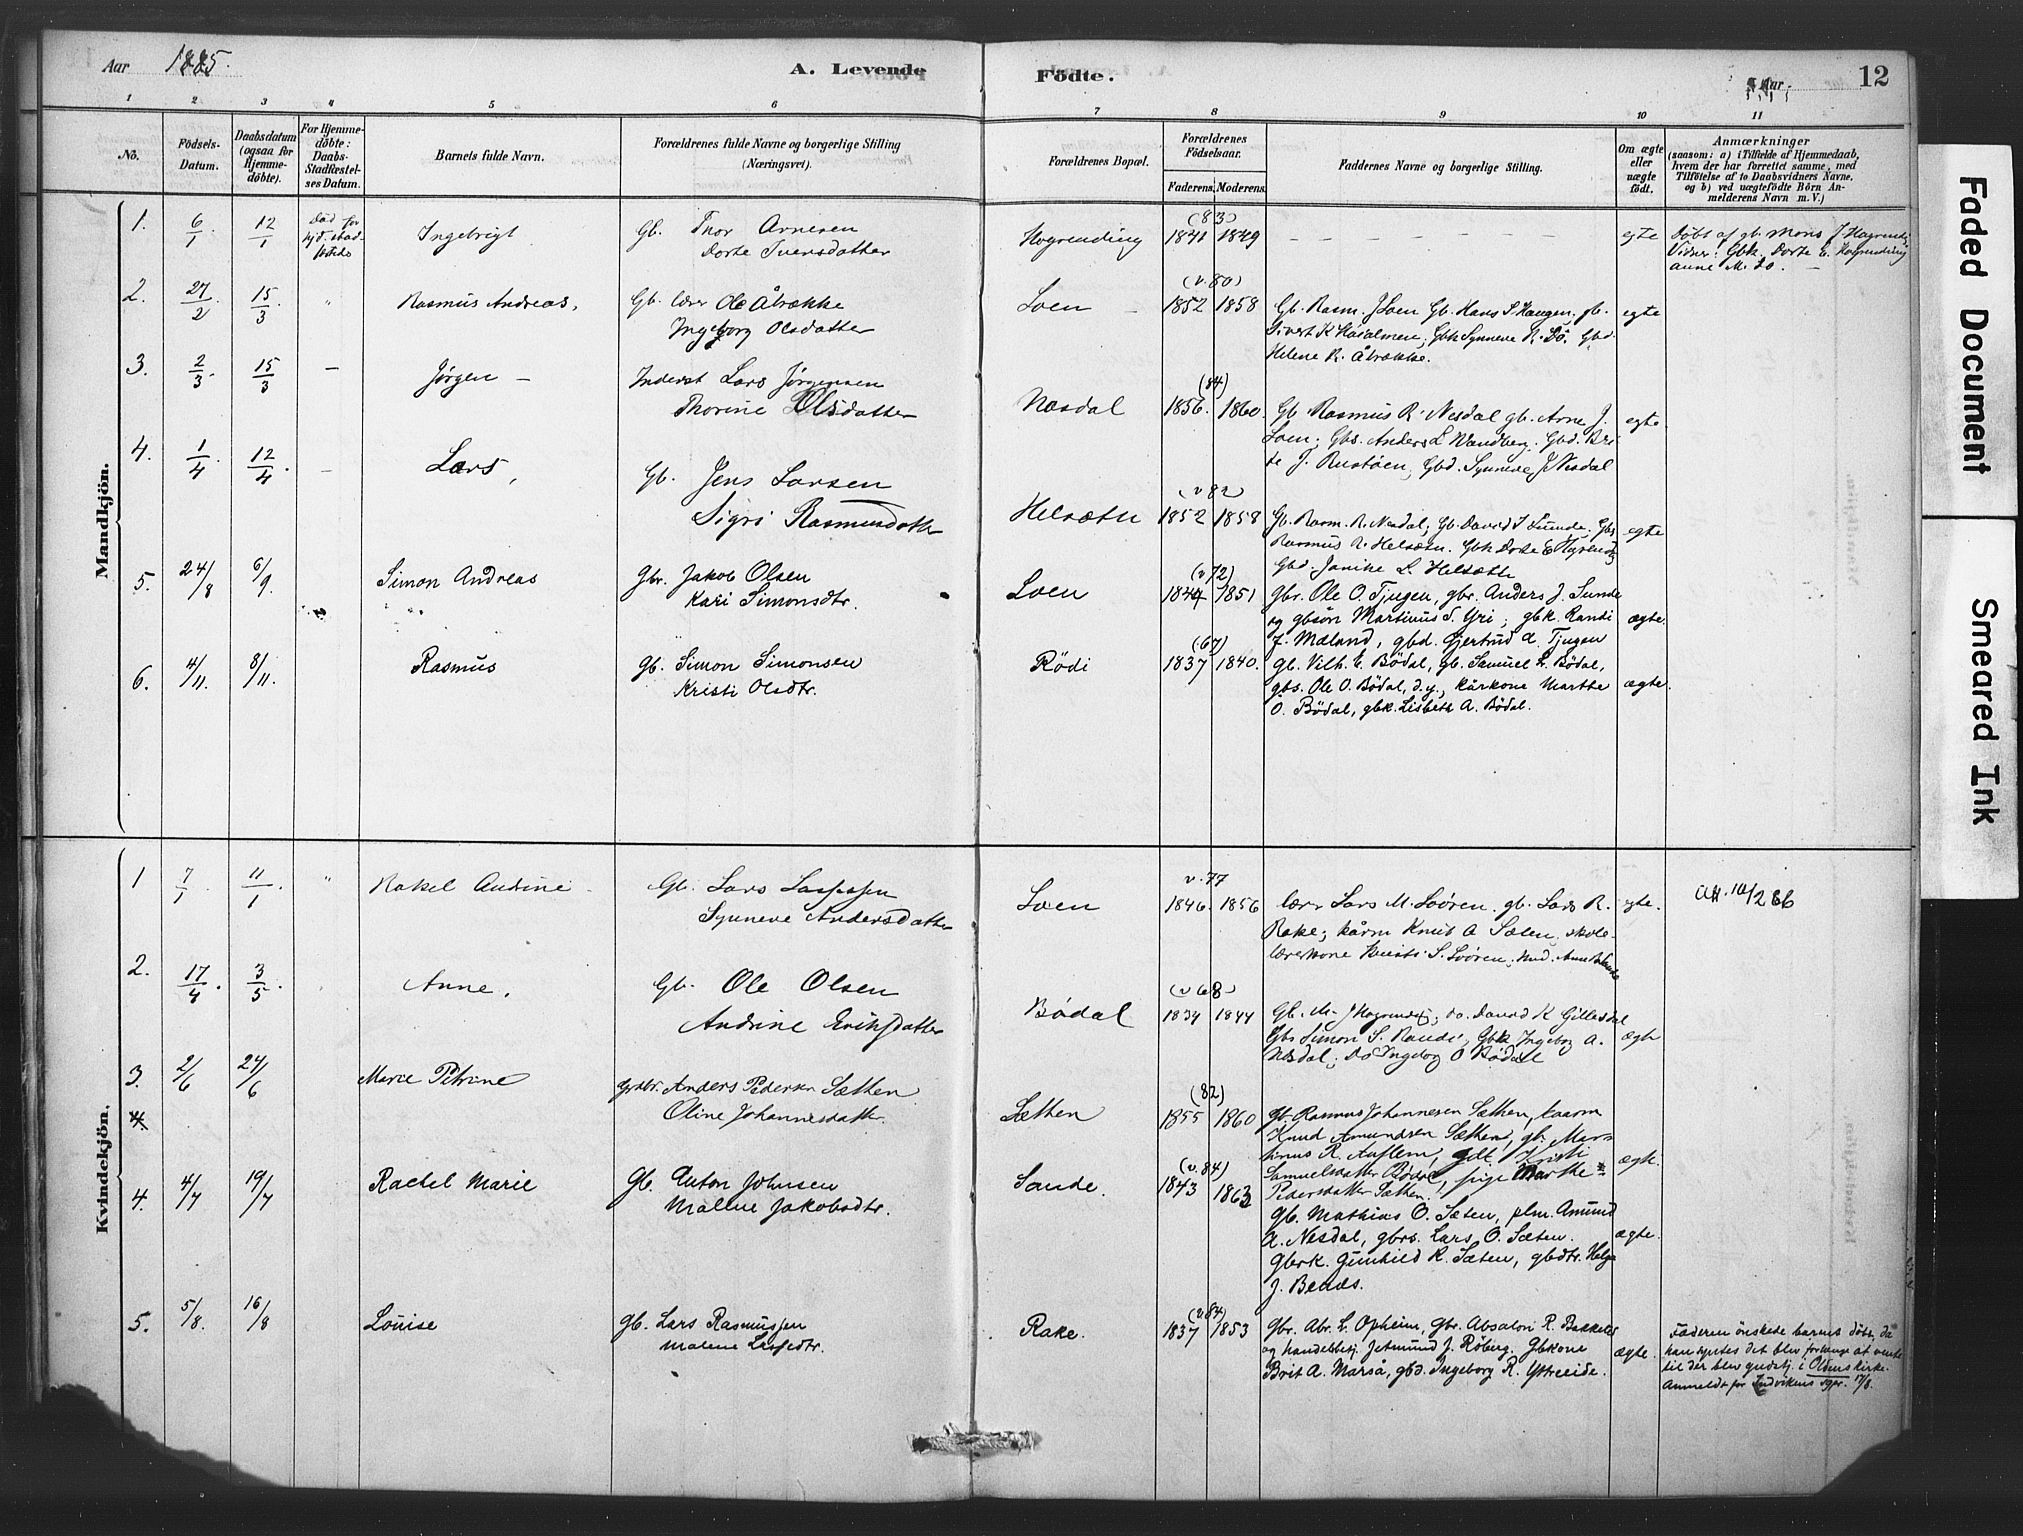 Aar 1885.
A. Levende Födte.
Aar 12
1 2 3 4 5 6 7 8 9 10 11
No.
Födsels-Datum.
Daabsdatum (ogsaa for Hjemme-döbte).
For Hjemme-döbte: Daabs-Stadfæstel-ses Datum.
Barnets fulde Navn.
Forældrenes fulde Navne og borgerlige Stilling (Næringsvei).
Forældrenes Bopæl.
Forældrenes Födselsaar.
Faderens. Moderens.
Faddernes Navne og borgerlige Stilling.
Om ægte eller uægte födt.
Anmærkninger
(saasom: a) i Tilfælde af Hjemmedaab,
hvem der har forrettet samme, med
Tilföielse af to Daabsvidners Navne,
og b) ved uægtefödte Börn An-
melderens Navn m. V.)
Mandkjön.
1. 6/1 12/1 Död før hjd. stad- Ingebrigt Gb. Thor Arnesen
Dorte Iversdatter
Hogrending (83) 1841 1849 — — — — — egte
Døbt af gb. Mons J. Hogrending
Vidner: Gbk. Dorte E. Hogrending
Anne M. do. —
2. 27/2 15/3 " Rasmus Andreas, Gb. lærer Ole Åbrekke
Ingeborg Olsdatter
Loen — (v. 80) 1852 1858 Gb. Rasm. J. Loen Gb. Hans S. Haugen, gb.
Sivert K. , Gbk Synneve R. Bö, Gbd.
Helene R. Åbrekke.
egte
3. 2/3 15/3 — Jørgen — Inderst Lars Jørgensen
Thorine Olsdatter
Nesdal (84) 1856. 1860. Gb. Rasmus R. Nesdal gb. Arne J.
Loen; Gbs. Anders L. Wandberg. Gbd. Bri
te J. Rustöen, Gbd. Synneve J. Nesdal
egte
4. 1/4 12/4 — Lars, Gb. Jens Larsen
Sigri Rasmusdatter
Helsætn (v 82) 1852 1858 Gb. Rasm. R. Nesdal, Gb. David I. Sunde, Gbs
Rasmus R. Helsætn. Gbk Dorte E. Hgrending
Gbd. Janike L. Helsætn
egte
5. 24/8 6/9. Simon Andreas Gbr. Jakob Olsen
Kari Simonsdtr.
Loen (v 72) 1844 1851 gbr. Ole O. Tjugen, gbr. Anders J. Sunde
og gbsön Martinus S. Yri; gbk. Randi
J. Mæland, gbd. Gjertrud A. Tjugen
ægte.
6. 4/11. 8/11. Rasmus gb. Simon Simonsen
Kristi Olsdtr.
Rödi (67) 1837 1840. gb. Vilh. E. Bödal, gb. Samuel A. Bödal,
gbs. Ole O. Bödal, d. y., kårkone Marthe
O. Bödal, gbk. Lisbeth A. Bödal.
ægte.
Kvindekjön.
1 7/1 11/1. " Rakel Andrine — Gb. Lars Lassesen
Synneve Andersdatter
Loen v. 77 1846. 1856 lærer Lars M. Loören. gb. Lars R.
Rake; kårm Knut A Sæten, skole-
lærerkone S. Loören,
egte.
Att. 10/2 86
2. 17/4. 3/5. Anne. Gb. Ole Olsen
Andrine Eriksdatter
Bödal (v 68) 1834 1844 Gb. M. J Hogrendig; do. David K Gillesdal
Gbs Simon S. Raudi; Gbk Ingeborg A.
Nesdal; do Ingeborg O Bødal
ægte
3. 2/6 24/6 Marie Petrine Grdbr. Anders Pedersen Sætten
Oline Johannesdatter
Sætten (82) 1855 1860 gb. Rasmus Johannesen Sætten, kaarm
Knud Amundsen Sætten, gb. Mar
tinus R. Auflem, gdt Kristi
Samuelsdatter Bödal, pige Marthe
Pedersdatter Sætten.
ægte.
4
4. 4/7 19/7 Rachel Marie Gb. Anton Johnsen
Malene Jakobsdtr.
Sande. (v. 84) 1843 1863 gb. Mathias O. Sæten, plm. Amund
A. Nesdal, gbrs. Lars O. Sæten.
Gbrk. Gunhild R. Sæten, gbdtr. Helga
J. Benæs.
ægte.
5. 5/8. 16/8 Louise gb. Lars Rasmussen
Malene Lassedtr.
Rake. (v. 84) 1837 1853 gbr. Abr. L. Opheim, gbr. Absalon R. Bakkeler
og handelsbetj. Jetmund J. Röberg. Gbkone
Brit A. Marså, gbd. Ingeborg R. Ytreeide.
ægte.
Faderen önskede barnets döbt, da
han syntes det blev forlænge at vente
til der blev gudstj. i Oldens kirke.
Anmeldt for Indvikens sgpr. 17/8.
Faded Document
Smeared Ink